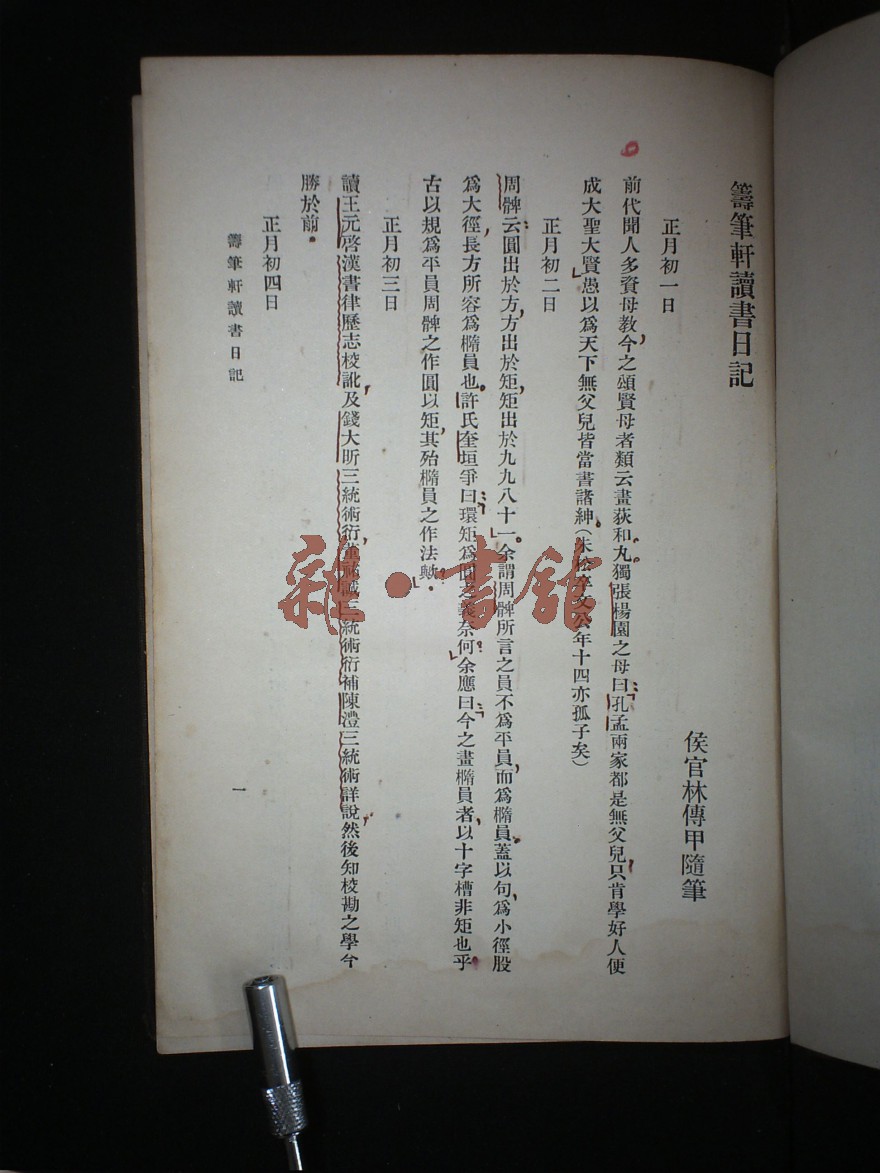 籌筆軒讀書日記
侯官林傳甲隨筆
正月初一日
前代聞人多資母教今之頌賢母者類云畫荻和丸獨張楊園之母曰孔孟兩家都是無父兒只肯學好人便
成大聖大賢愚以爲天下無父兒皆當書諸紳(朱松卒文公年十四亦孤子矣)
正月初二日
周髀云圓出於方方出於矩矩出於九九八十一余謂周髀所言之員不爲平員而爲橢員蓋以句爲小徑股
爲大徑長方所容爲橢員也許氏奎垣爭曰環矩爲圓之義奈何余應曰今之畫橢員者以十字槽非矩也乎
古以規爲平員周髀之作圓以矩其殆橢員之作法歟
正月初三日
讀王元啓漢書律歷志校訛及錢大昕三統術衍董祐誠三統術衍補陳澧三統術詳說然後知校勘之學今
勝於前
正月初四日
籌筆軒讀書日記
一
雜·書館